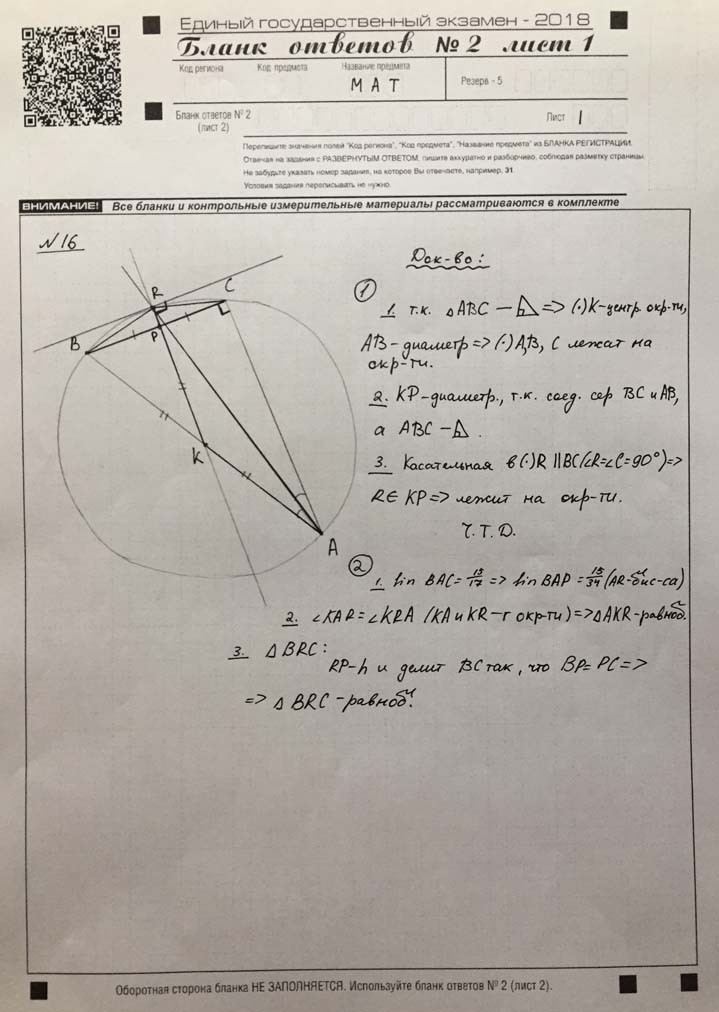 Единый государственный экзамен - 2018
Бланк ответов № 2 лист 1
Код региона Код предмета Название предмета
МАТ
Резерв - 5
Бланк ответов № 2
(лист 2)
Лист 1
Перепишите значения полей "Код региона", "Код предмета", "Название предмета" из БЛАНКА РЕГИСТРАЦИИ.
Отвечая на задания с РАЗВЕРНУТЫМ ОТВЕТОМ, пишите аккуратно и разборчиво, соблюдая разметку страницы.
Не забудьте указать номер задания, на которое Вы отвечаете, например, 31.
Условия задания переписывать не нужно.
ВНИМАНИЕ! Все бланки и контрольные измерительные материалы рассматриваются в комплекте
№16
R
C
B
P
K
A
Док-во:
① 1. т.к. △ABC – ⊿ => (·)K-центр окр-ти,
AB-диаметр => (·)A,B, C лежат на
окр-ти.
2. KP-диаметр., т.к. соед. сер BC и AB,
а ABC – ⊿.
3. Касательная в (·)R ∥ BC(∠R=∠C=90°)=>
R∈ KP => лежит на окр-ти.
Ч.Т.Д.
② 1. sin BAC = 15/17 => sin BAP = 15/34 (AR-бис-са)
2. ∠KAR = ∠KRA (KA и KR – r окр-ти) => △AKR-равноб.
3. △BRC:
RP-h и делит BC так, что BP=PC =>
=> △BRC-равноб.
Оборотная сторона бланка НЕ ЗАПОЛНЯЕТСЯ. Используйте бланк ответов № 2 (лист 2).